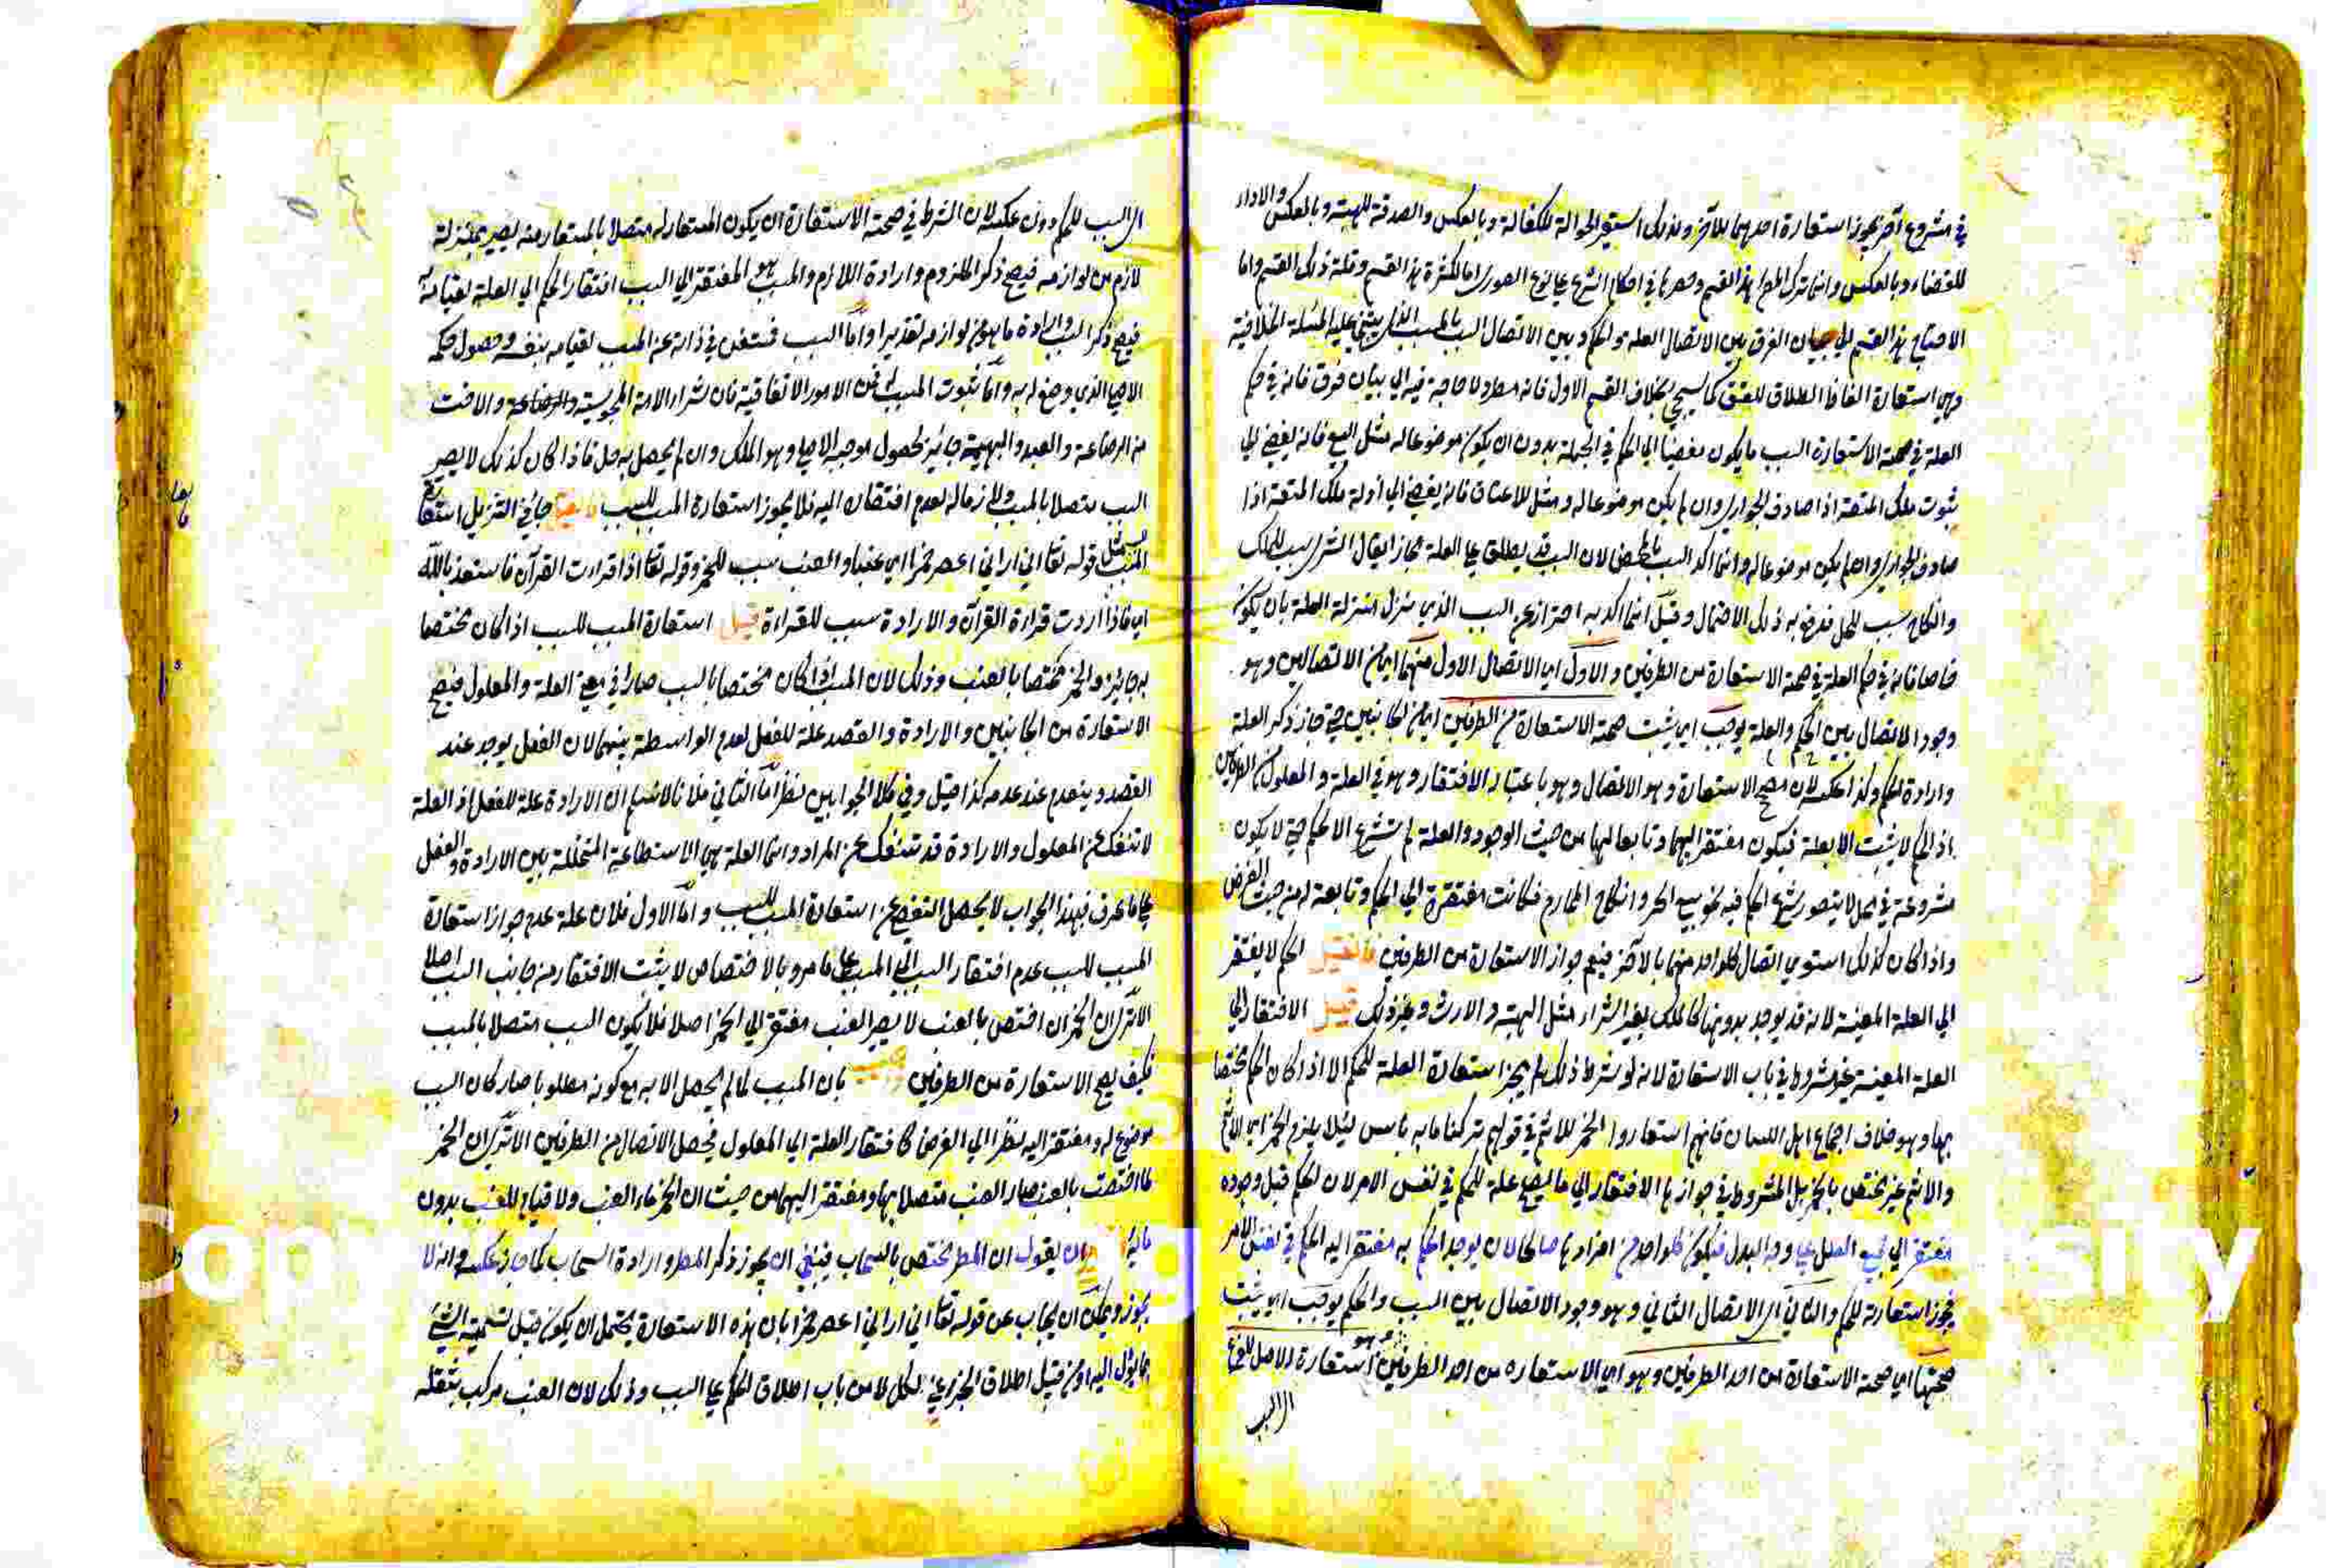 في مشروع آخر يجوز استعارة احدهما للآخر ولذلك استعير الحوالة للكفالة وبالعكس والصدقة للهبة وبالعكس والاداء
للقضاء وبالعكس وانما ترك المص هذا القسم وحصرها في احكام الشرع على نوع الصوري اما لكثرة هذا القسم وقلة ذلك القسم واما
لاحتياج هذا القسم الى بيان الفرق بين الاتصال العلة والحكم وبين الاتصال السبب بالمسبب الذي يبتني عليه المسئلة الخلافية
وهي استعارة الفاظ الطلاق للعتق كما سيجئ بخلاف القسم الاول فانه مطرد لا حاجة فيه الى بيان فرق فانه في حكم
العلة في صحة الاستعارة السبب ما يكون مفضيا الى الحكم في الجملة بدون ان يكون موضوعا له مثل البيع فانه يفضي الى
ثبوت ملك المتعة اذا صادف الجواري وان لم يكن موضوعا له ومثل الاعتاق فانه يفضي الى ازالة ملك المتعة اذا
صادف الجواري وان لم يكن موضوعا له وانما اكد السبب بالمحض لان السبب قد يطلق على العلة مجازا يقال الشراء سبب للملك
والنكاح سبب للحل فدفع به ذلك الاحتمال وقيل انما اكد به احترازا عن السبب الذي منزل منزلة العلة بان يكون
خاصا فانه في حكم العلة في صحة الاستعارة من الطرفين والاول اي الاتصال الاول منهما اي من الاتصالين وهو
وجود الاتصال بين الحكم والعلة يوجب اي يثبت صحة الاستعارة من الطرفين اي من الجانبين حتى جاز ذكر العلة
وارادة الحكم وكذا عكسه لان مصحح الاستعارة وهو الاتصال وهو باعتبار الافتقار وهو في العلة والمعلول من الطرفين
اذ الحكم لا يثبت الا بعلة فيكون مفتقرا اليها وتابعا لها من حيث الوجود والعلة لم تشرع الا للحكم حتى لا يكون
مشروعة في محل لا يتصور شرع الحكم فيه نحو بيع الحر ونكاح المحارم فكانت مفتقرة الى الحكم وتابعة له من حيث الغرض
واذا كان كذلك استوى اتصال كل واحد منهما بالآخر فيعم جواز الاستعارة من الطرفين فان قيل الحكم لا يفتقر
الى العلة المعينة لانه قد يوجد بدونها كالملك بغير الشراء مثل الهبة والارث وغير ذلك قيل الافتقار الى
العلة المعينة غير مشروط في باب الاستعارة لانه لو شرط ذلك لم يجز استعارة العلة للحكم الا اذا كان الحكم مختصا
بها وهو خلاف اجماع اهل اللسان فانهم استعاروا الخمر للاثم في قولهم تركنا ما به باس لئلا يلزم الخمر اي الاثم
والاثم غير مختص بالخمر بل المشروط في جوازها الافتقار الى ما يصح علة للحكم في نفس الامر لان الحكم قبل وجوده
مفتقر الى جميع العلل على وجه البدل فيكون كل واحد من افرادها صالحا لان يوجد الحكم به مفتقرا اليه الحكم في نفس الامر
فيجوز استعارته للحكم والثاني اي الاتصال الثاني وهو وجود الاتصال بين السبب والحكم يوجب اي يثبت
صحتها اي صحة الاستعارة من احد الطرفين وهو اي الاستعاره من احد الطرفين هو استعارة الاصل للفرع
اي السبب
اي السبب للحكم دون عكسه لان الشرط في صحة الاستعارة ان يكون المستعار له متصلا بالمستعار منه ليصير بمنزلة
لازم من لوازمه فيصح ذكر الملزوم وارادة اللازم والمسبب هو المفتقر الى السبب افتقار الحكم الى العلة لقيامه به
فيصح ذكر السبب وارادة ما هو من لوازمه تقديرا واما السبب فمستغن في ذاته عن المسبب لقيامه بنفسه وحصول حكمه
الاصلي الذي وضع له به واما ثبوت المسبب به فمن الامور الاتفاقية فان شراء الامة المجوسية والرضاعة والاخت
من الرضاعة والعبد والبهيمة جائز لحصول موجبه الاصلي وهو الملك وان لم يحصل به حل فاذا كان كذلك لا يصير
السبب متصلا بالمسبب ولازما له لعدم افتقاره اليه فلا يجوز استعارة المسبب للسبب فان قيل جاء في التنزيل استعارة
المسبب مثل قوله تعا اني اراني اعصر خمرا اي عنبا والعنب سبب للخمر وقوله تعا اذا قرات القرآن فاستعذ بالله
اي فاذا اردت قراءة القرآن والارادة سبب للقراءة قيل استعارة المسبب للسبب اذا كان مختصا
به جائز والخمر مختصا بالعنب وذلك لان المسبب اذا كان مختصا بالسبب صارا في معنى العلة والمعلول فيصح
الاستعارة من الجانبين والارادة والقصد علة للفعل لعدم الواسطة بينهما لان الفعل يوجد عند
القصد وينعدم عند عدمه كذا قيل وفي كلا الجوابين نظر اما الثاني فلانا لا نسلم ان الارادة علة للفعل اذ العلة
لا تنفك عن المعلول والارادة قد تنفك عن المراد وانما العلة هي الاستطاعة المتخللة بين الارادة والفعل
على ما عرف فبهذا الجواب لا يحصل التفصي عن استعارة المسبب للسبب واما الاول فلان علة عدم جواز استعارة
المسبب للسبب عدم افتقار السبب الى المسبب على ما مر وبالاختصاص لا يثبت الافتقار من جانب السبب اصلا
الا ترى ان الخمر ان اختص بالعنب لا يصير العنب مفتقرا الى الخمر اصلا فلا يكون السبب متصلا بالمسبب
فكيف يصح الاستعارة من الطرفين بان المسبب لما لم يحصل الا به مع كونه مطلوبا صار كان السبب
موضوع له ومفتقر اليه نظرا الى الغرض كافتقار العلة الى المعلول فيحصل الاتصال من الطرفين الا ترى ان الخمر
لما اختصت بالعنب صار العنب متصلا بها ومفتقرا اليها من حيث ان الخمر ماء العنب ولا قيام للعنب بدون
مائه ان يقول ان المطر مختص بالسحاب فينبغي ان يجوز ذكر المطر وارادة السحاب كما جاز عكسه وانه لا
يجوز ويمكن ان يجاب عن قوله تعا اني اراني اعصر خمرا بان هذه الاستعارة يحتمل ان يكون من قبيل تسمية الشئ
بما يؤل اليه او من قبيل اطلاق الجزء على الكل لا من باب اطلاق الحكم على السبب وذلك لان العنب مركب بثقله